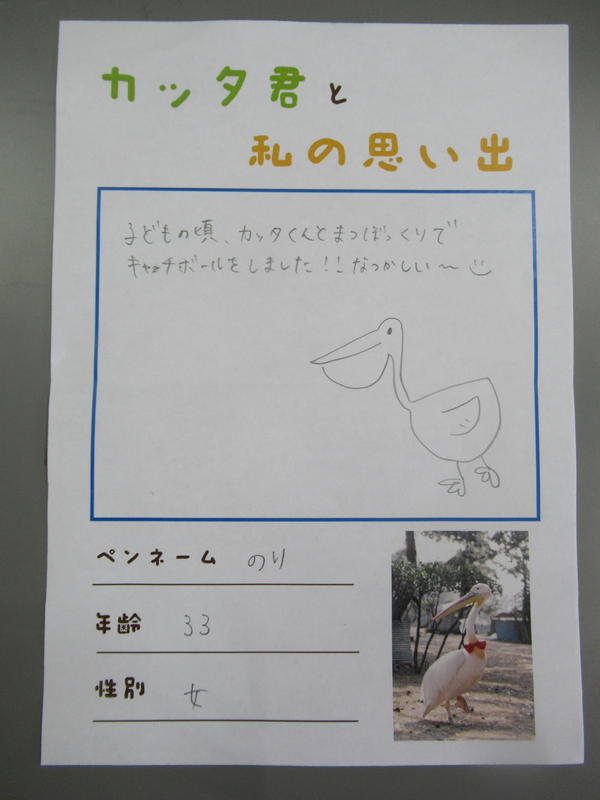 カッタ君と
私の思い出
子どもの頃、カッタくんとまつぼっくりで
キャッチボールをしました!!なつかしい〜
ペンネーム のり
年齢 33
性別 女